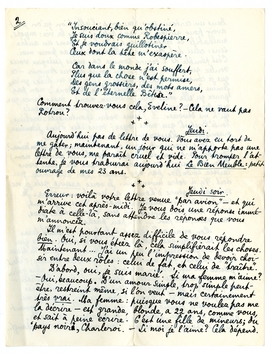 2
"Insouciant, bien qu'obstiné,
Je suis doux comme Robespierre,
Et je voudrais guillotiner
Ceux dont la bête m'exaspère.
Car dans le monde j'ai souffert,
Plus que la chose n'est permise,
Des gens grossiers, des mots amers,
Et de l'Éternelle Bêtise."
Comment trouvez-vous cela, Eveline? - Cela ne vaut pas
Rotrou?
Jeudi.
Aujourd'hui pas de lettre de vous. Vous avez eu tort de
me gâter; maintenant, un jour qui ne m'apporte pas une
lettre de vous, me paraît cruel et vide. Pour tromper l'at-
tente, je vous traduirai aujourd'hui Le Bien Meublé: petit
ouvrage de mes 23 ans.
Jeudi soir.
Erreur: voilà votre lettre venue "par avion" - et qui
m'arrive cet après-midi. Je vous dois une réponse immé-
diate à celle-là, sans attendre les réponses que vous
m'annoncez.
Il m'est pourtant assez difficile de vous répondre
bien. Oui, si vous étiez là, cela simplifierait les choses.
Maintenant... J'ai un peu l'impression de devoir choi-
sir entre deux rôles: celui de fat, et celui de traître.
D'abord, oui, je suis marié. - Si ma femme m'aime?
- oui, beaucoup. D'un amour simple, trop simple peut-
être restreint même si l'on veut - mais certainement
très vrai. Ma femme: puisque vous ne voulez pas me
en décrire - est grande, blonde, a 22 ans, comme vous,
et sait à peine écrire. C'est une fille de mineurs; du
"pays noir", Charleroi. - Si moi je l'aime? Cela dépend.